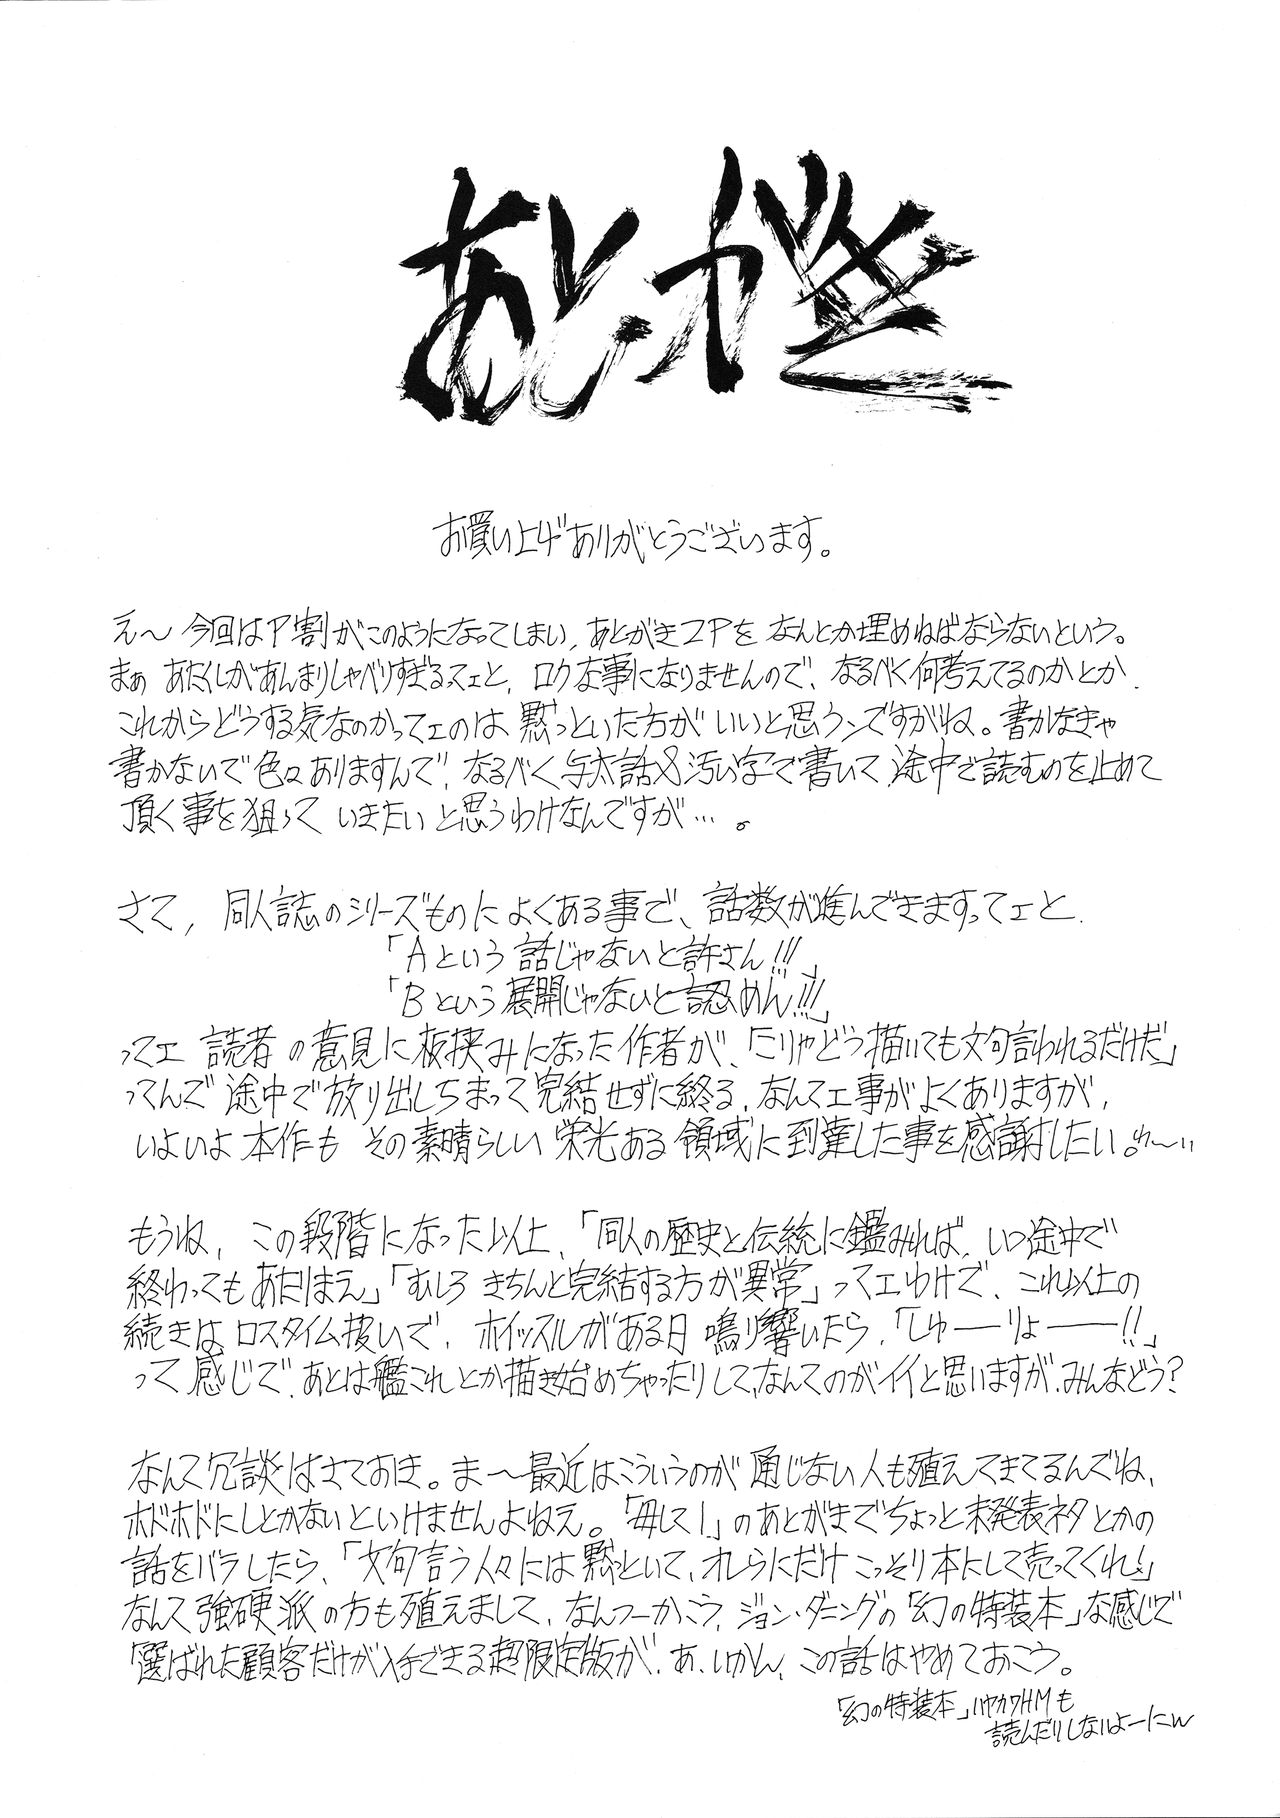 あとがき
お買い上げありがとうございます。
え～今回はP割がこのようになってしまい、あとがき2Pをなんとか埋めねばならないという。
まぁ あたくしがあんまりしゃべりすぎるってェと、ロクな事になりませんので、なるべく何考えてるのかとか
これからどうする気なのかってェのは 黙っといた方がいいと思うンですがね。書かなきゃ
書かないで色々ありますんで、なるべく与太話&汚い字で書いて 途中で読むのを止めて
頂く事を狙って いきたいと思うわけなんですが…。
さて、同人誌のシリーズものによくある事で、話数が進んできますってェと、
「Aという話じゃないと許さん!!!」
「Bという展開じゃないと認めん!!!」
ってェ 読者の意見に板挟みになった作者が、「こりゃどう描いても文句言われるだけだ」
ってんで途中で放り出しちまって完結せずに終る、なんてェ事がよくありますが、
いよいよ本作も その素晴らしい栄光ある領域に到達した事を感謝したい。わ～い
もうね、この段階になった以上、「同人の歴史と伝統に鑑みれば、いつ途中で
終わってもあたりまえ」「むしろ きちんと完結する方が異常」ってェわけで、これ以上の
続きはロスタイム扱いで、ホイッスルがある日鳴り響いたら、「しゅーーりょーーー!!」
って感じで、あとは艦これとか描き始めちゃったりして、なんてのがイイと思いますが、みんなどう?
なんて冗談はさておき。ま～最近はこういうのが通じない人も殖えてきてるんでね、
ホドホドにしとかないといけませんよねえ。「毎して!」のあとがきでちょっと未発表ネタとかの
話をバラしたら、「文句言う人々には黙っといて、オレらにだけこっそり本にして売ってくれ!」
なんて強硬派の方も殖えまして、なんつーかこう、ジョン・ダニングの「幻の特装本」な感じで
「選ばれた顧客だけが入手できる超限定版が、あ、いかん、この話はやめておこう。
「幻の特装本」ハヤカワHMも
読んだりしないよーにw